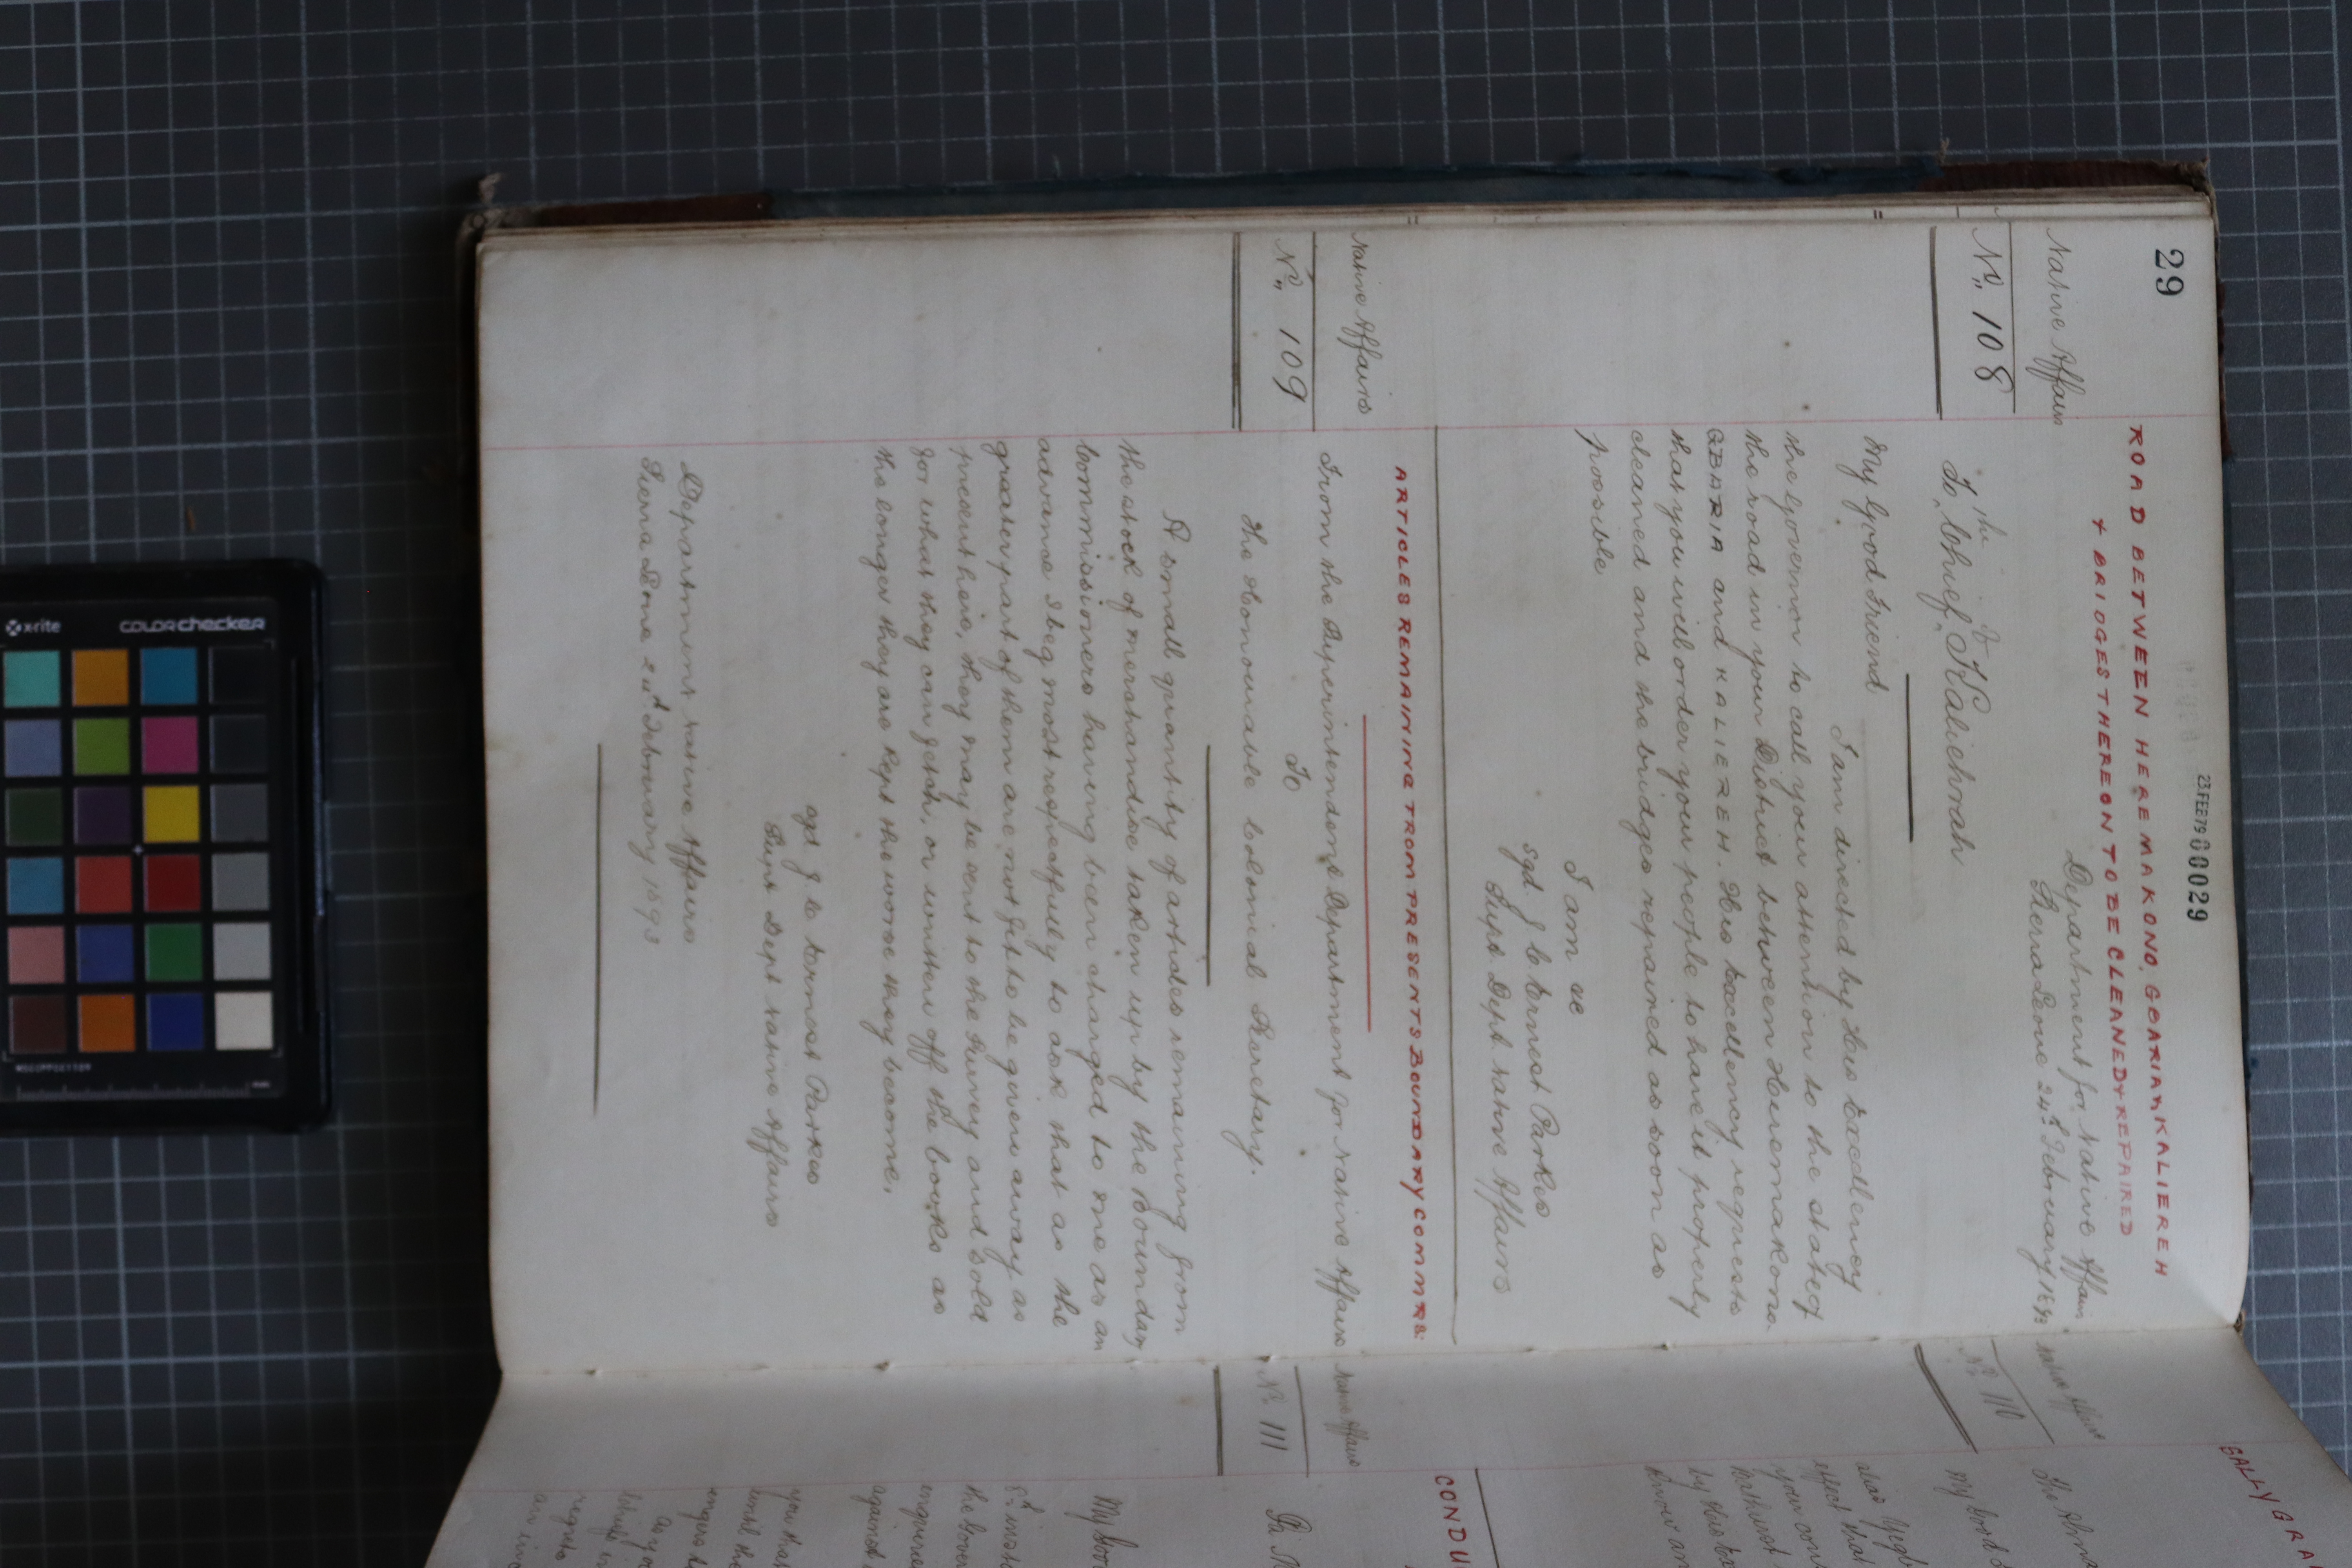 29
23.FEB79 00029
ROAD BETWEEN HEREMAKONO, GBARIA & KALIEREH
& BRIDGES THEREON TO BE CLEANED & REPAIRED
Native Affairs
Department for Native Affairs
Sierra Leone 24th February 1893
No. 108
the of
To Chief Kaliehrah
My Good Friend
I am directed by His Excellency
the Governor to call your attention to the state of
the road in your District between Heremakono
GBARIA and KALIEREH. His Excellency requests
that you will order your people to have it properly
cleaned and the bridges repaired as soon as
possible
I am &c
sgd. J C Ernest Parkes
Supt Dept Native Affairs
ARTICLES REMAINING FROM PRESENTS BOUNDARY COMMRS:
Native Affairs
From the Superintendent Department for Native Affairs
To
No. 109
The Honourable Colonial Secretary.
A small quantity of articles remaining from
the stock of merchandise taken up by the Boundary
Commissioners having been charged to me as an
advance I beg most respectfully to ask that as the
greater part of them are not fit to be given away as
present here, they may be sent to the Survey and sold
for what they can fetch, or written off the books as
the longer they are kept the worse they become.
sgd J C Ernest Parkes
Supt Dept Native Affairs
Department Native Affairs
Sierra Leone 24th February 1893
Native Affairs
No. 110
SALLY GRA
My Good
Native Affairs
No. 111
CONDU
My Goo
the Gover
enquire
against
you that
until th